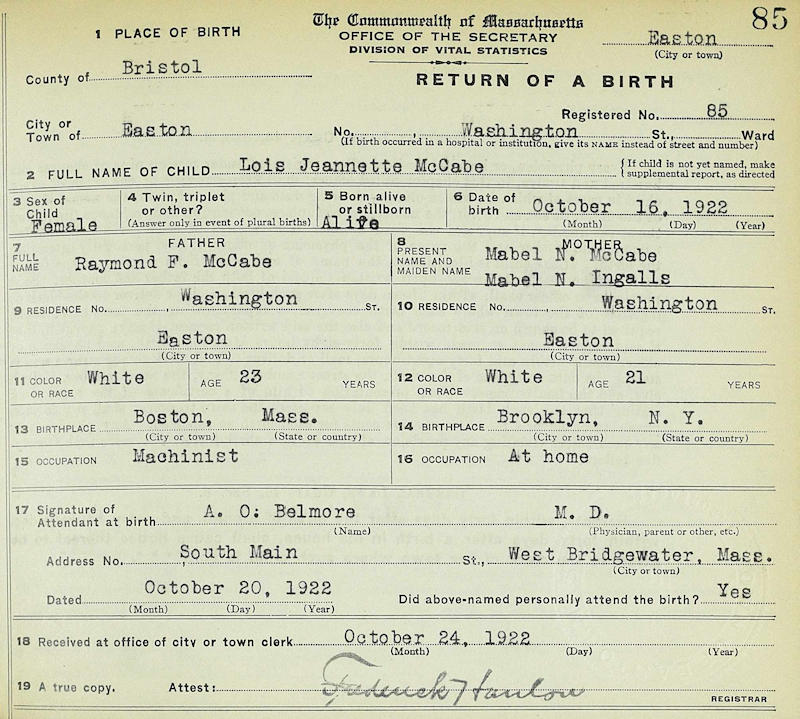 85
The Commonwealth of Massachusetts
1 PLACE OF BIRTH
OFFICE OF THE SECRETARY
Easton
DIVISION OF VITAL STATISTICS
(City or town)
County of Bristol
RETURN OF A BIRTH
Registered No. 85
City or
Town of Easton No. , Washington St., Ward
(If birth occurred in a hospital or institution, give its NAME instead of street and number)
2 FULL NAME OF CHILD Lois Jeannette McCabe
{If child is not yet named, make
supplemental report, as directed
3 Sex of
Child
Female
4 Twin, triplet
or other?
(Answer only in event of plural births)
5 Born alive
or stillborn
Alive
6 Date of
birth October 16, 1922
(Month) (Day) (Year)
7 FATHER
FULL
NAME Raymond F. McCabe
8 MOTHER
PRESENT
NAME AND
MAIDEN NAME
Mabel N. McCabe
Mabel N. Ingalls
9 RESIDENCE No. , Washington ST.
Easton
(City or town)
10 RESIDENCE No. , Washington ST.
Easton
(City or town)
11 COLOR
OR RACE White AGE 23 YEARS
12 COLOR
OR RACE White AGE 21 YEARS
13 BIRTHPLACE Boston, Mass.
(City or town) (State or country)
14 BIRTHPLACE Brooklyn, N. Y.
(City or town) (State or country)
15 OCCUPATION Machinist
16 OCCUPATION At home
17 Signature of
Attendant at birth A. O. Belmore M. D.
(Name) (Physician, parent or other, etc.)
Address No. , South Main St., West Bridgewater, Mass.
(City or town)
Dated October 20, 1922
(Month) (Day) (Year)
Did above-named personally attend the birth? Yes
18 Received at office of city or town clerk October 24, 1922
(Month) (Day) (Year)
19 A true copy. Attest: Frederick Hanlon
REGISTRAR